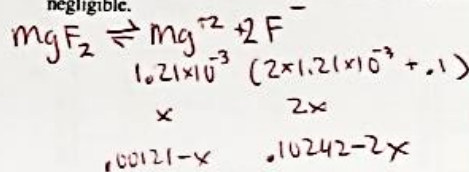 negligible.
mgF₂ ⇌ Mg⁺² + 2F⁻
1.21×10⁻³ (2×1.21×10⁻³ + .1)
x 2x
.00121-x .10242-2x